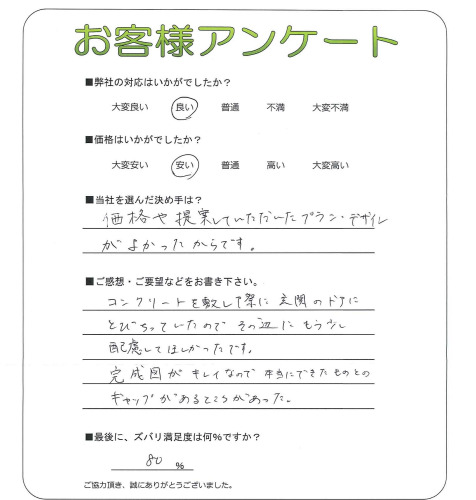 お客様アンケート
■弊社の対応はいかがでしたか？
大変良い 良い 普通 不満 大変不満
■価格はいかがでしたか？
大変安い 安い 普通 高い 大変高い
■当社を選んだ決め手は？
価格や提案していただいたプラン・デザイン
がよかったからです。
■ご感想・ご要望などをお書き下さい。
コンクリートを敷して際に玄関のドアに
とびちっていたのでその辺にもう少し
配慮してほしかったです。
完成図がキレイなので本当にできたものとの
ギャップがあるところがあった。
■最後に、ズバリ満足度は何%ですか？
80 %
ご協力頂き、誠にありがとうございました。